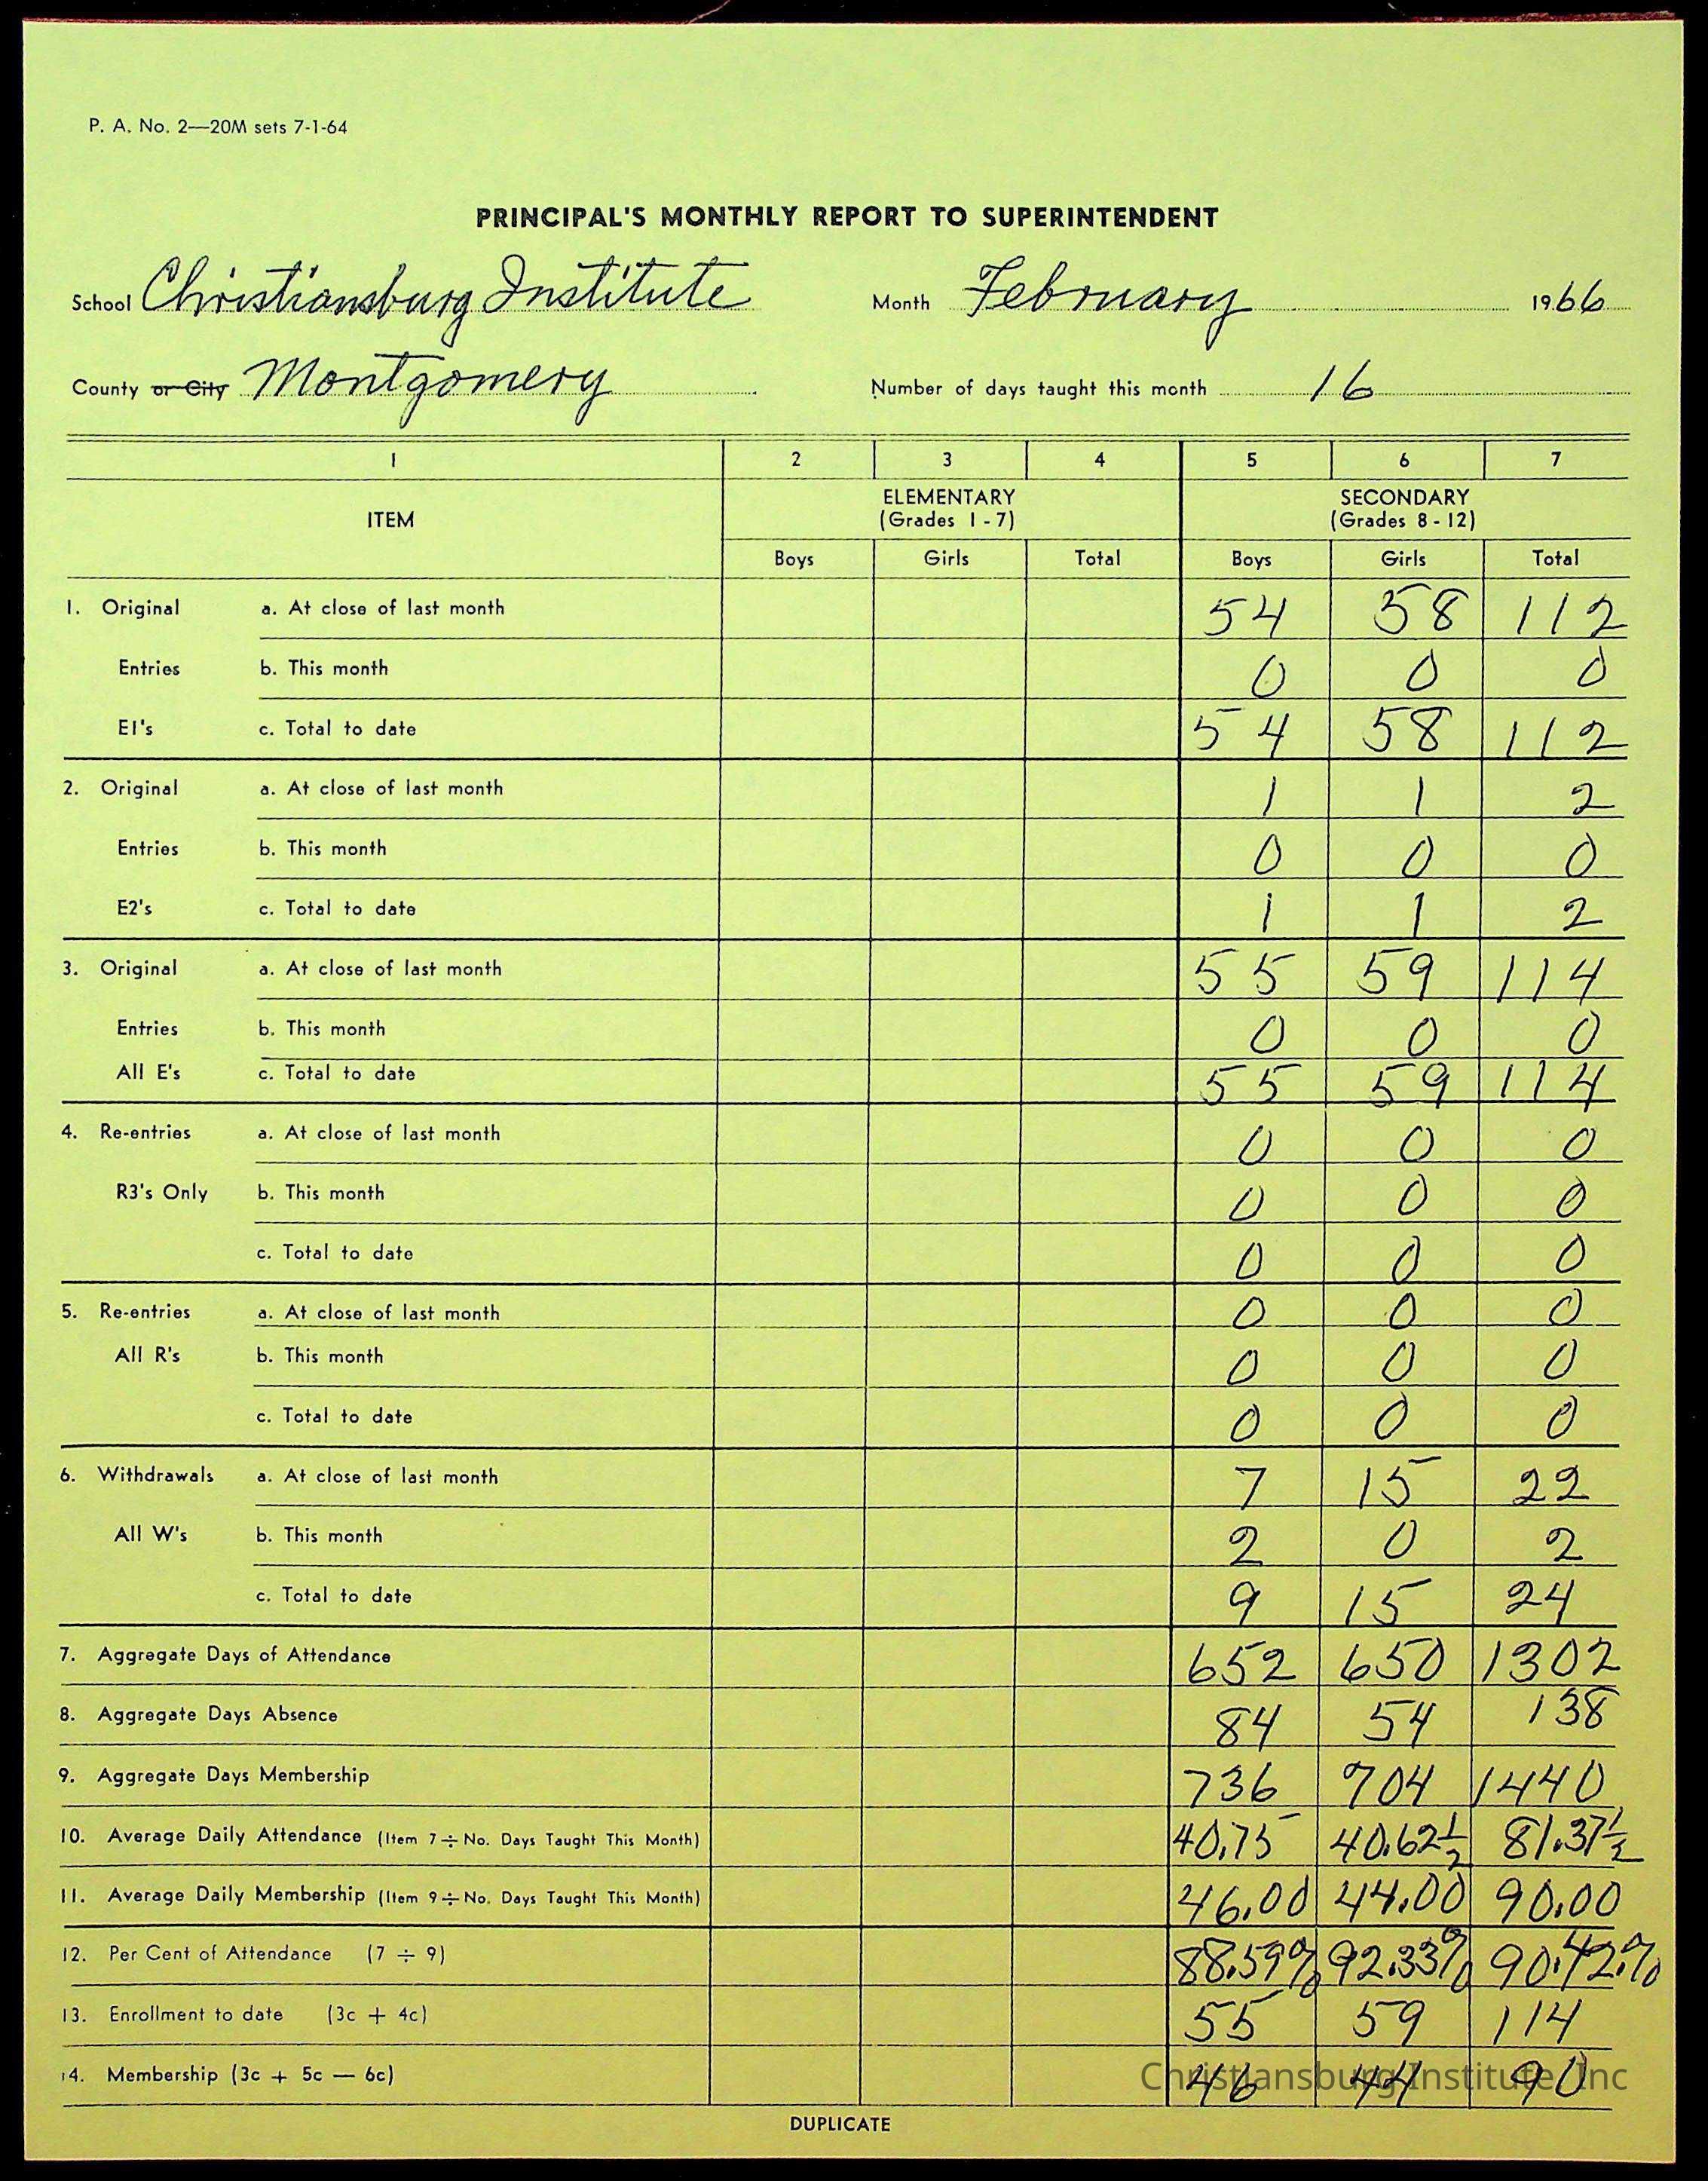 P. A. No. 2—20M sets 7-1-64
PRINCIPAL'S MONTHLY REPORT TO SUPERINTENDENT
School Christiansburg Institute Month February 1966
County or City Montgomery Number of days taught this month 16
1 2 3 4 5 6 7
ITEM ELEMENTARY (Grades 1 - 7) SECONDARY (Grades 8 - 12)
Boys Girls Total Boys Girls Total
1. Original a. At close of last month 54 58 112
Entries b. This month 0 0 0
E1's c. Total to date 54 58 112
2. Original a. At close of last month 1 1 2
Entries b. This month 0 0 0
E2's c. Total to date 1 1 2
3. Original a. At close of last month 55 59 114
Entries b. This month 0 0 0
All E's c. Total to date 55 59 114
4. Re-entries a. At close of last month 0 0 0
R3's Only b. This month 0 0 0
c. Total to date 0 0 0
5. Re-entries a. At close of last month 0 0 0
All R's b. This month 0 0 0
c. Total to date 0 0 0
6. Withdrawals a. At close of last month 7 15 22
All W's b. This month 2 0 2
c. Total to date 9 15 24
7. Aggregate Days of Attendance 652 650 1302
8. Aggregate Days Absence 84 54 138
9. Aggregate Days Membership 736 704 1440
10. Average Daily Attendance (Item 7 ÷ No. Days Taught This Month) 40.75 40.62½ 81.37½
11. Average Daily Membership (Item 9 ÷ No. Days Taught This Month) 46.00 44.00 90.00
12. Per Cent of Attendance (7 ÷ 9) 88.59% 92.33% 90.42%
13. Enrollment to date (3c + 4c) 55 59 114
14. Membership (3c + 5c — 6c) 46 44 90
Christiansburg Institute, Inc
DUPLICATE